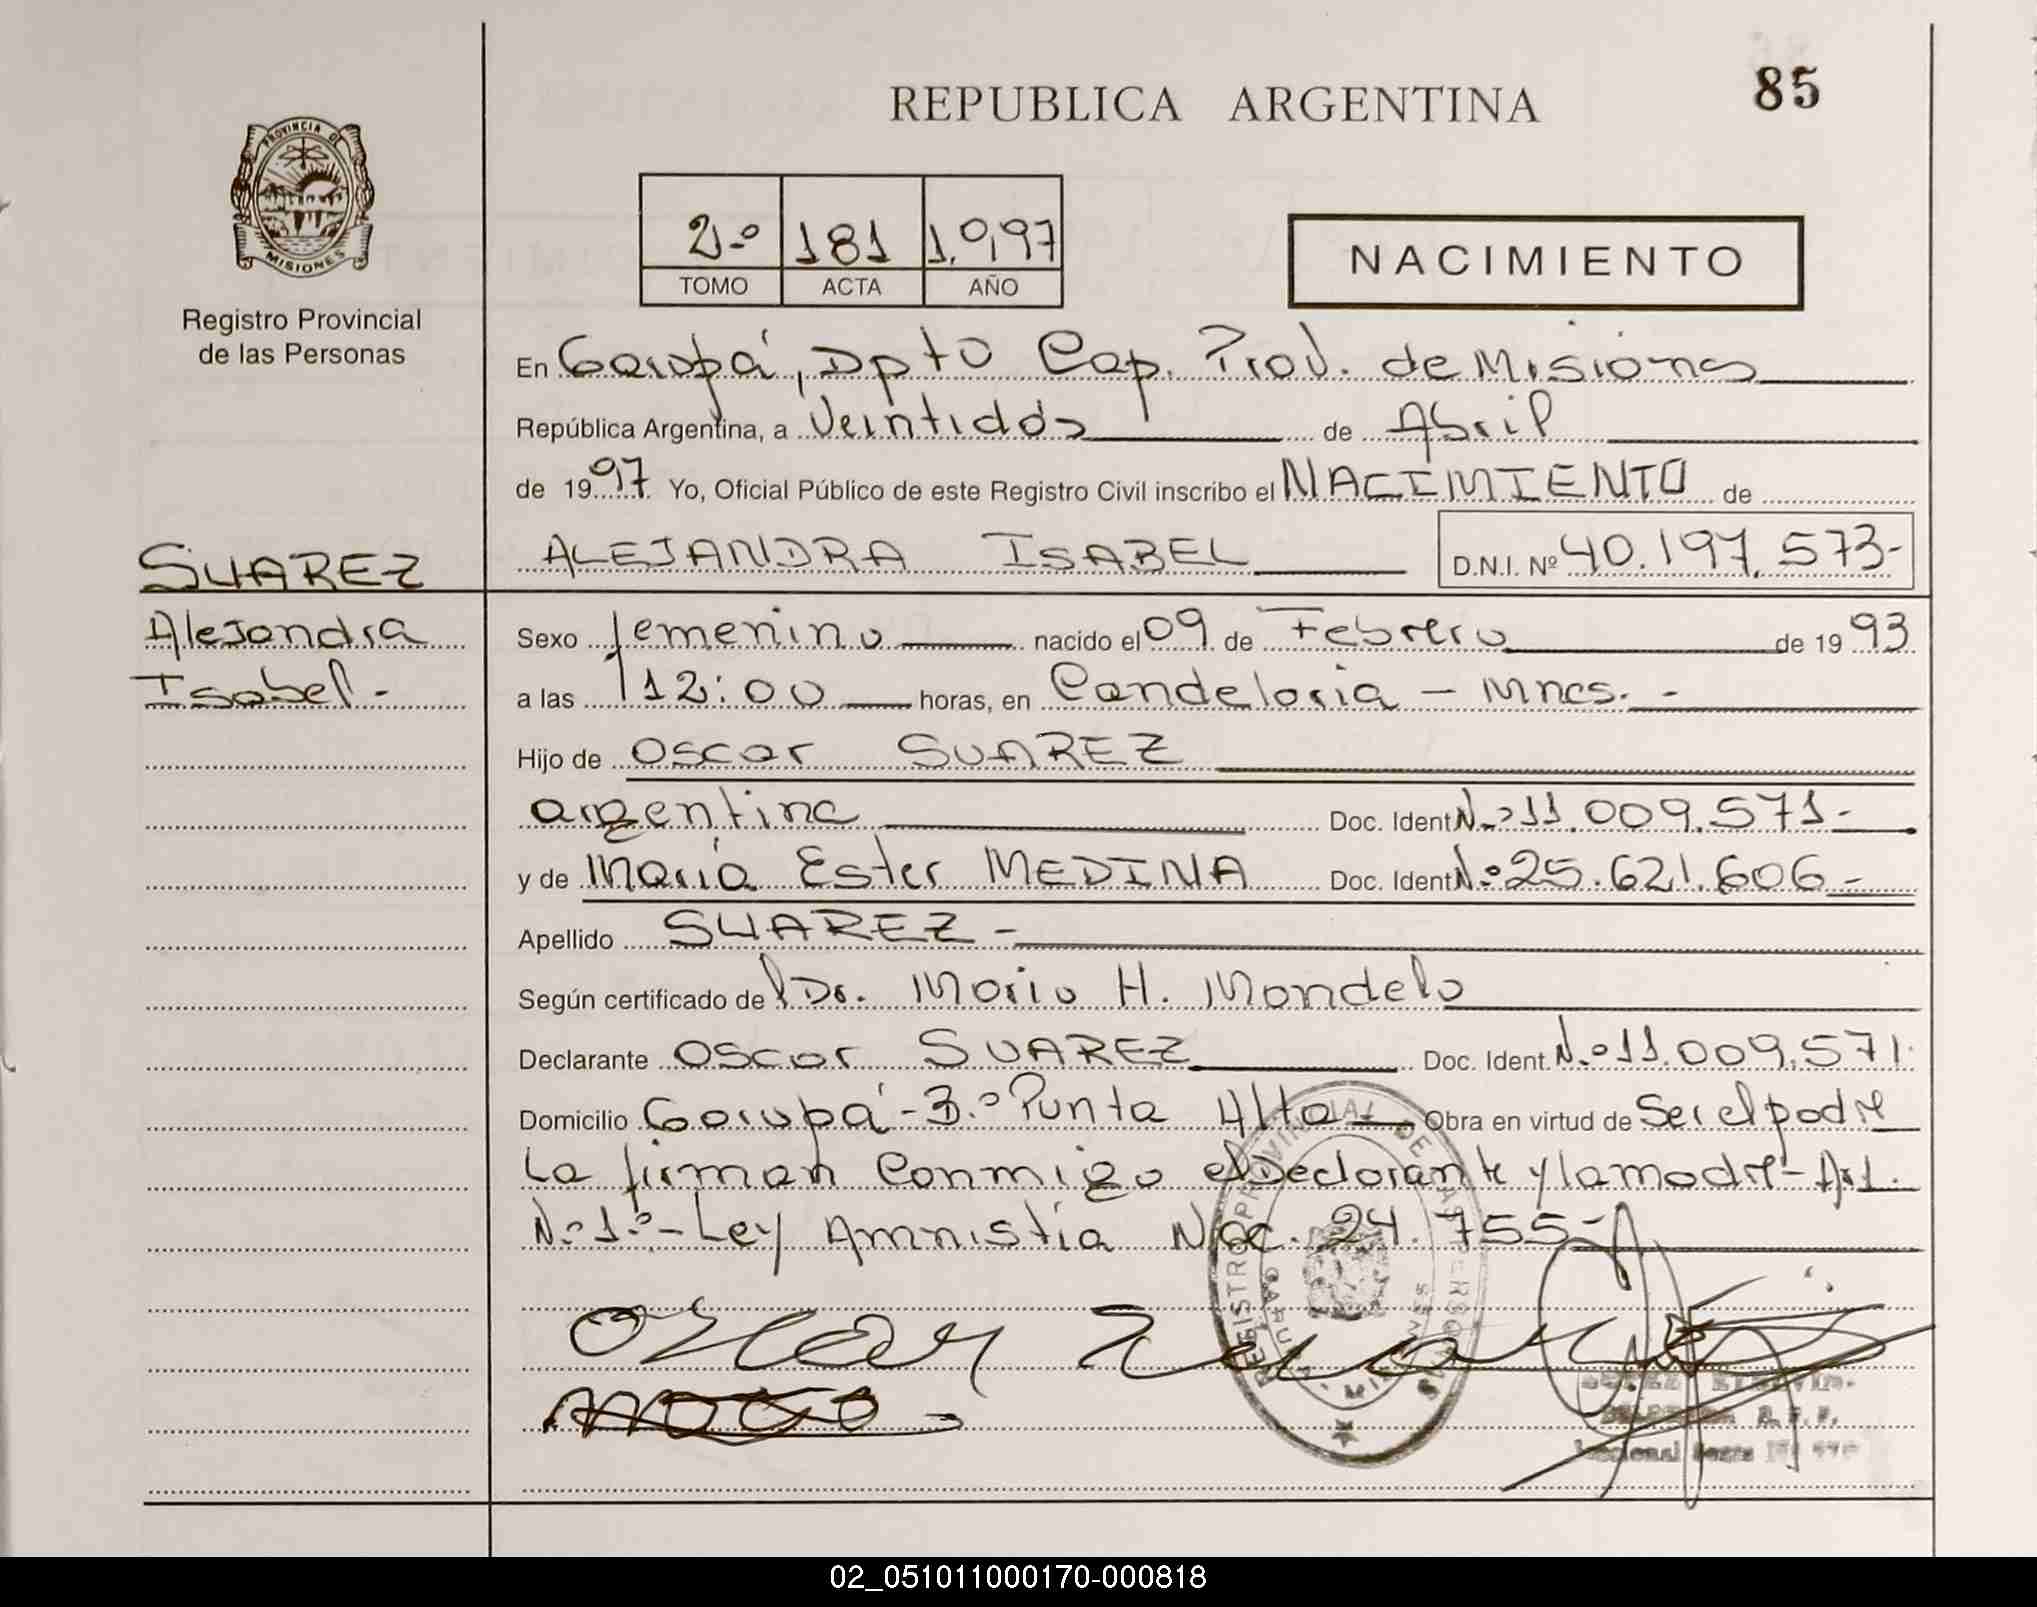 REPUBLICA ARGENTINA
85
PROVINCIA DE
MISIONES
Registro Provincial
de las Personas
2.º 181 1.997
TOMO ACTA AÑO
NACIMIENTO
En Garupá, Dpto Cap. Prov. de Misiones
República Argentina, a Veintidós de Abril
de 1997 Yo, Oficial Público de este Registro Civil inscribo el NACIMIENTO de
SUAREZ
ALEJANDRA ISABEL D.N.I. Nº 40.197.573-
Alejandra
Isabel.-
Sexo femenino nacido el 09 de Febrero de 1993
a las 12:00 horas, en Candelaria - Mnes. -
Hijo de Oscar SUAREZ
argentina Doc. Ident N.º 11.009.571-
y de María Ester MEDINA Doc. Ident N.º 25.621.606-
Apellido SUAREZ -
Según certificado de Dr. Mario H. Mondelo
Declarante Oscar SUAREZ Doc. Ident. N.º 11.009.571.
Domicilio Garupá - B.º Punta Alta Obra en virtud de Ser el padre
La firman Conmigo el Declarante y la madre - Art.
N.º 1.º - Ley Amnistía Nac. 24.755-
REGISTRO PROVINCIAL DE LAS PERSONAS
GARUPA
MISIONES
Oscar Suarez
02_051011000170-000818